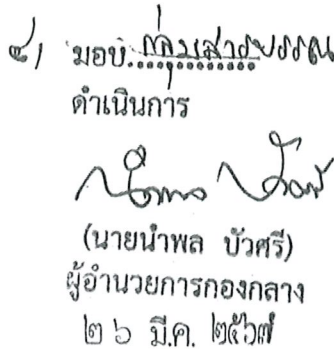 ๔/ มอบ กลุ่มสารบรรณ
ดำเนินการ
(นายนำพล บัวศรี)
ผู้อำนวยการกองกลาง
๒๖ มี.ค. ๒๕๖๗